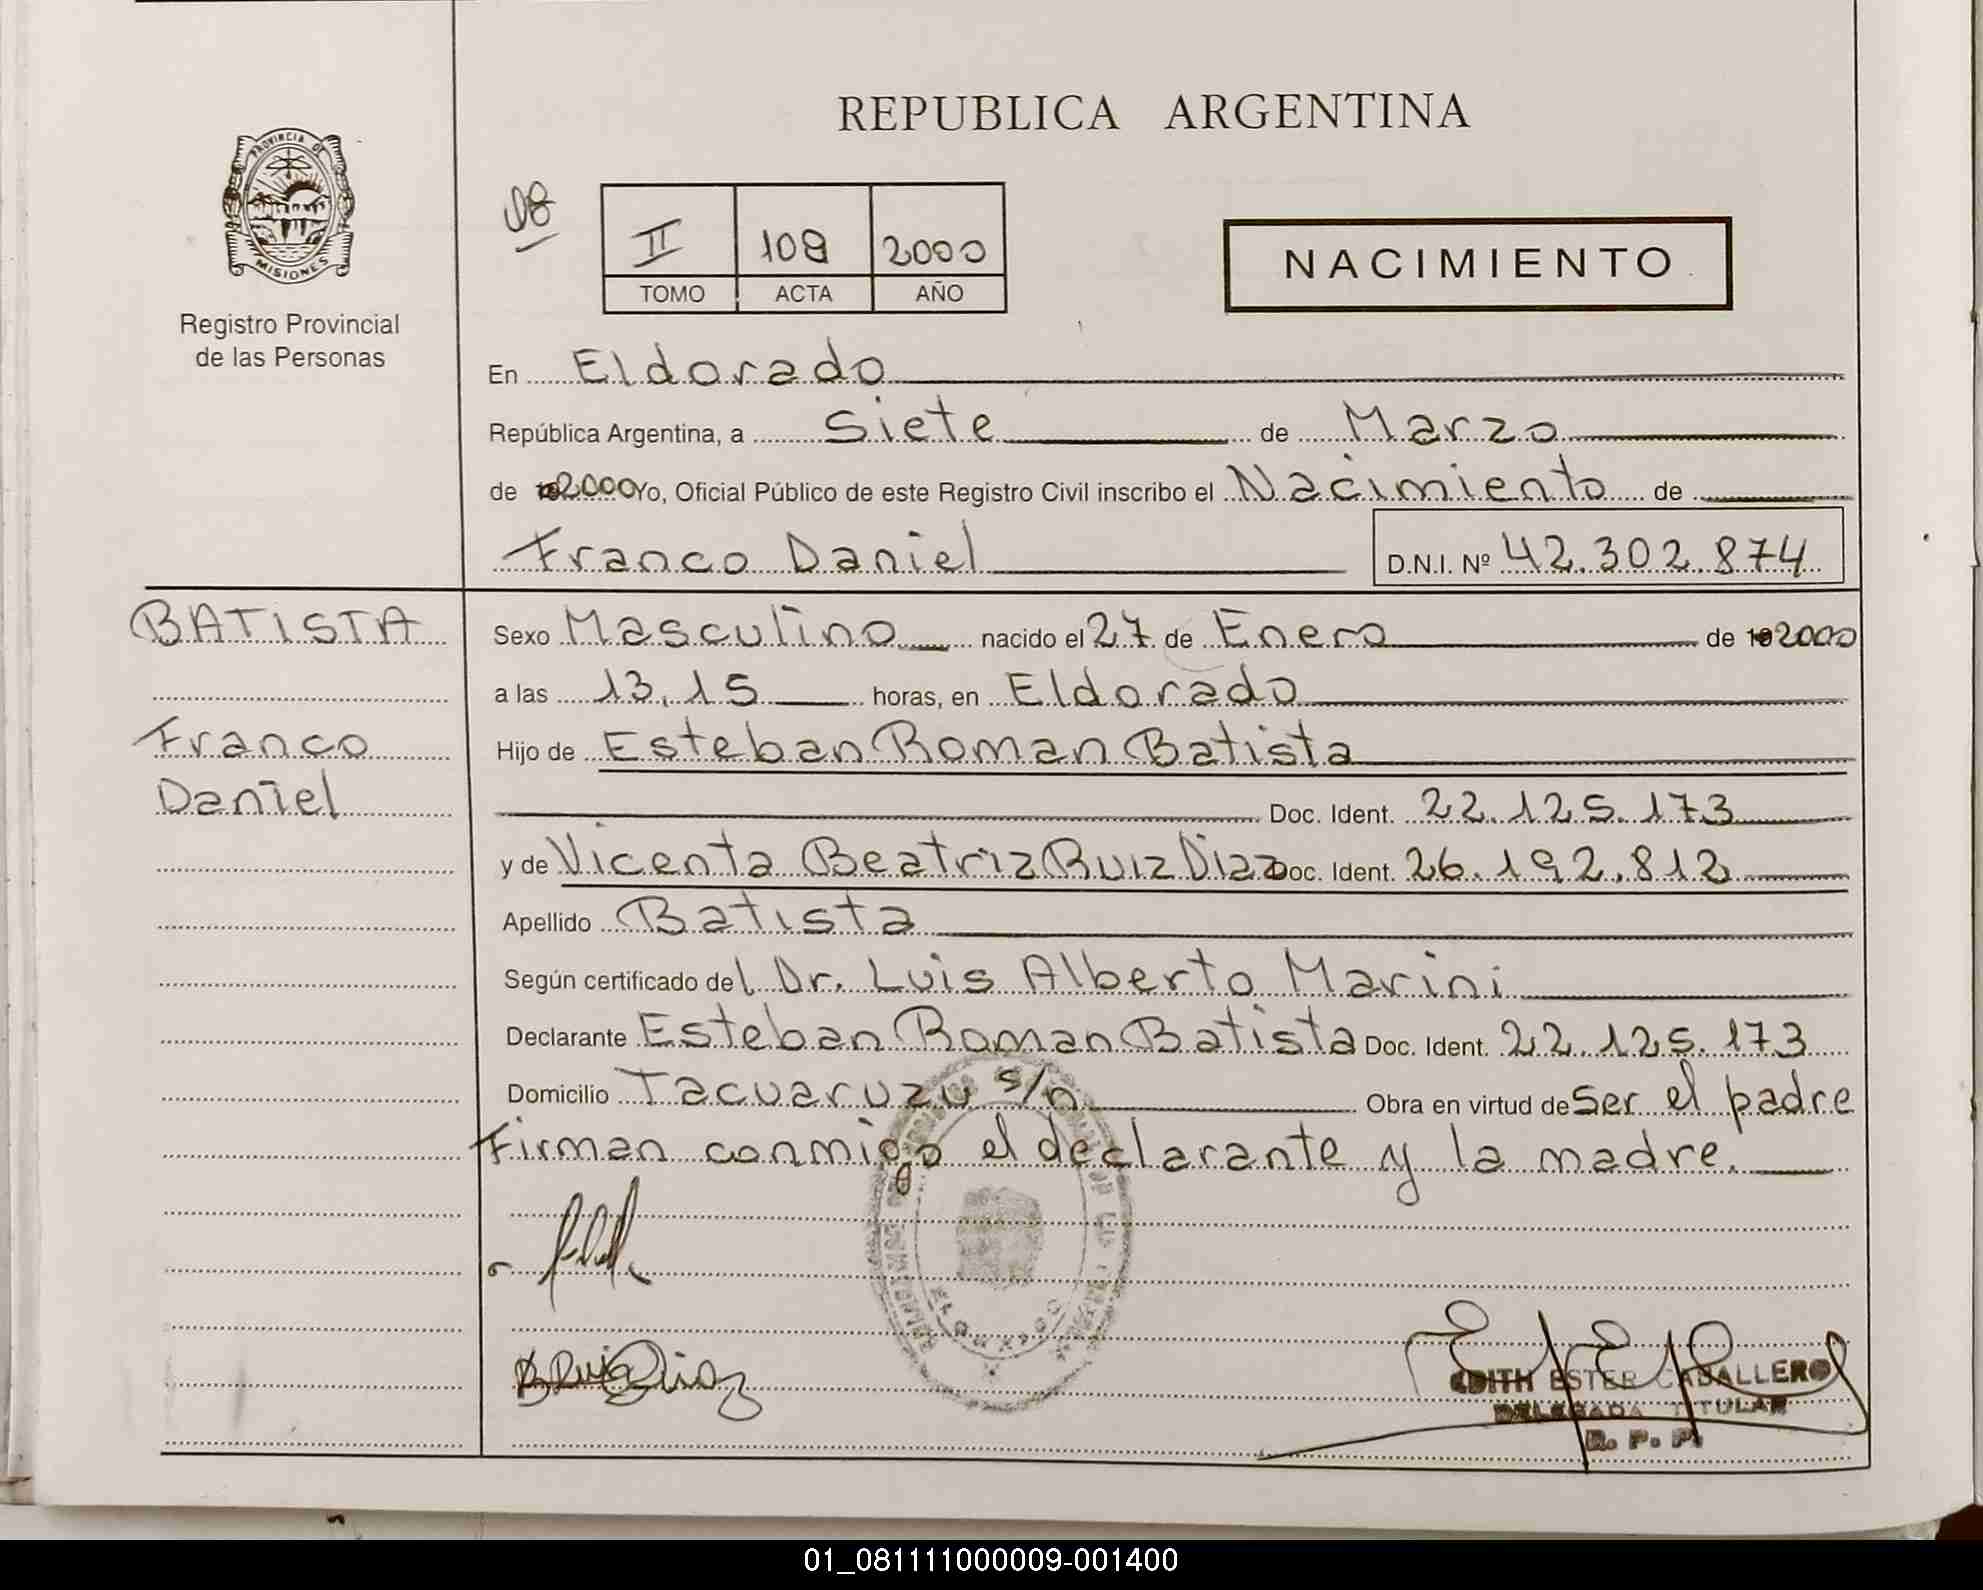 REPUBLICA ARGENTINA
PROVINCIA DE
MISIONES
Registro Provincial
de las Personas
08
II 108 2000
TOMO ACTA AÑO
NACIMIENTO
En Eldorado
República Argentina, a Siete de Marzo
de 2000 Yo, Oficial Público de este Registro Civil inscribo el Nacimiento de
Franco Daniel D.N.I. Nº 42.302.874
BATISTA
Franco
Daniel
Sexo Masculino nacido el 27 de Enero de 2000
a las 13,15 horas, en Eldorado
Hijo de Esteban Roman Batista
Doc. Ident. 22.125.173
y de Vicenta Beatriz Ruiz Diaz Doc. Ident. 26.192.812
Apellido Batista
Según certificado del Dr. Luis Alberto Marini
Declarante Esteban Roman Batista Doc. Ident. 22.125.173
Domicilio Tacuaruzu s/n Obra en virtud de ser el padre
Firman conmigo el declarante y la madre.
B Ruiz Diaz
EDITH ESTER CABALLERO
DELEGADA TITULAR
R. P. P.
01_081111000009-001400